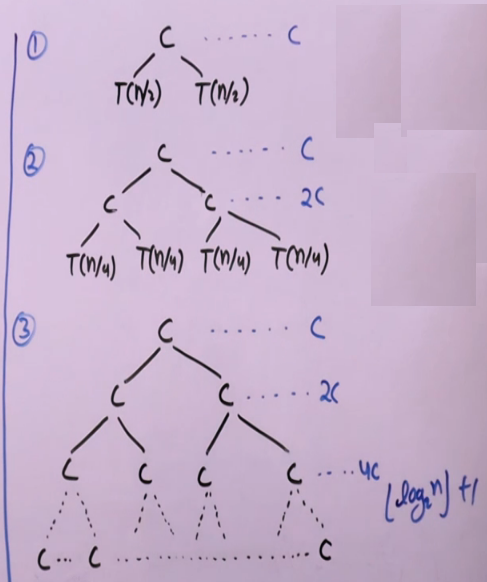 ① C ...... C
T(n/2) T(n/2)
② C ...... C
C C ..... 2C
T(n/4) T(n/4) T(n/4) T(n/4)
③ C ...... C
C C ...... 2C
C C C C ..... 4C
⌊log₂n⌋ + 1
C ... C .................. C